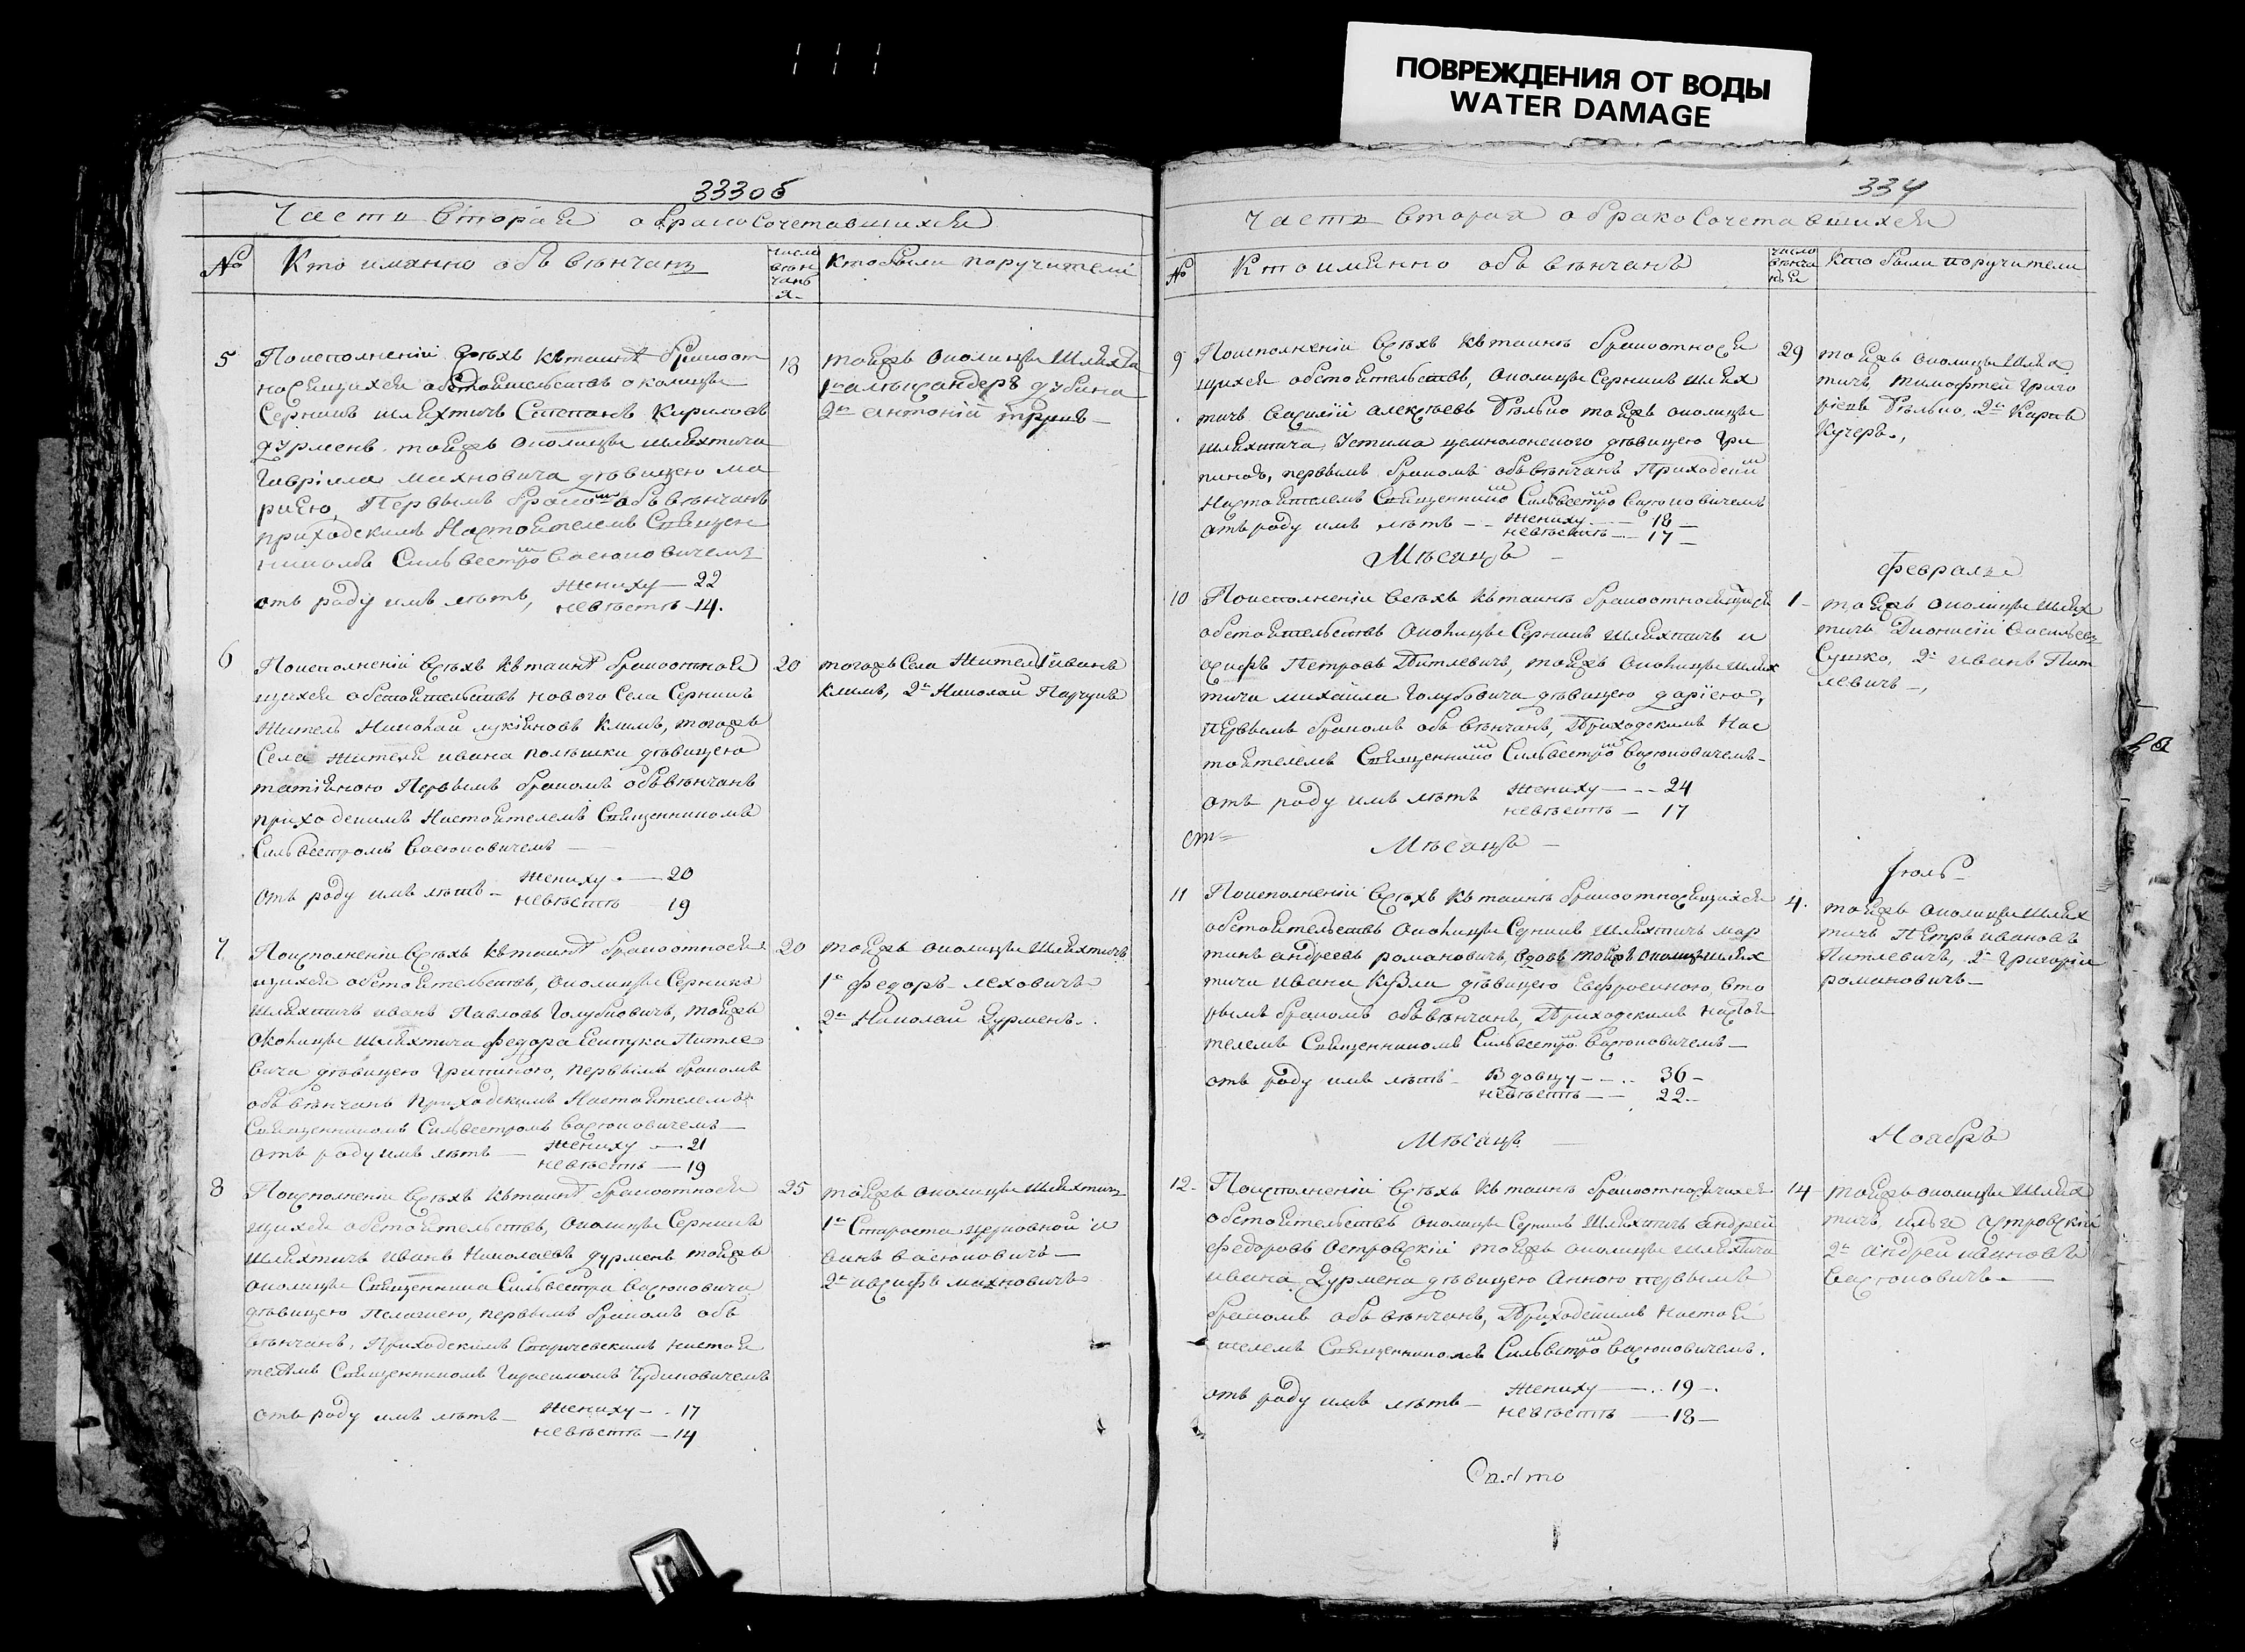 ПОВРЕЖДЕНИЯ ОТ ВОДЫ
WATER DAMAGE
333об
Часть Вторая о бракосочетавшихся
№
Кто имянно обвѣнчанъ
число вѣнчаня
Кто были поручители
5
По исполненіи всѣхъ къ таинѣ брако от
носящихся обстоятельствъ околицы
Серникъ шляхтичъ Степанъ Кириловъ
Дурменъ тойжъ околицы шляхтича
Гавріила Махновича дѣвицею Ма
риею, Первымъ бракомъ обвѣнчанъ
приходскимъ Настоятелемъ Священ
никомъ Сильвестромъ Васюковичемъ
отъ роду имъ лѣтъ, жениху — 22
невѣстѣ — 14.
18
тойжъ околицы Шляхта
1й Александеръ Дубина
2й Антоній
6
По исполненіи всѣхъ къ таинѣ бракоотнося
щихся обстоятельствъ нового Села Серникъ
Житель Николай Лукіяновъ Климъ, тогожъ
Села жителя Ивана Полѣшки дѣвицею
татіяною Первымъ бракомъ обвѣнчанъ
приходскимъ Настоятелемъ Священникомъ
Сильвестромъ Васюковичемъ —
отъ роду имъ лѣтъ — жениху — 20
невѣстѣ 19
20
тогожъ Села Жители 1й Иванъ
Климъ, 2й Николай
7
По исполненіи всѣхъ къ таинѣ бракоотнося
щихся обстоятельствъ, околицы Серникъ
шляхтичъ Иванъ Павловъ Голубовичъ, тойжъ
околицы шляхтича Федора Питле
вича дѣвицею Грипиною, первымъ бракомъ
обвѣнчанъ приходскимъ Настоятелемъ
Священникомъ Сильвестромъ Васюковичемъ —
отъ роду имъ лѣтъ — жениху — 21
невѣстѣ — 19
20
тойжъ околицы Шляхтичъ
1й Федоръ Леховичъ
2й Николай Дурменъ.
8
По исполненіи всѣхъ къ таинѣ бракоотнося
щихся обстоятельствъ, околицы Серникъ
шляхтичъ Иванъ Николаевъ Дурменъ тойжъ
околицы Священника Сильвестра Васюковича
дѣвицею Пелагиею, первымъ бракомъ об
вѣнчанъ, Приходскимъ Старичевскимъ Настоя
телемъ Священникомъ Герасимомъ Чудиновичемъ
отъ роду имъ лѣтъ — жениху — 17
невѣстѣ — 14
25
тойжъ околицы Шляхтичъ
1й Староста церковной И
ванъ Васюковичъ —
2й Иосифъ Махновичъ
334
Часть Вторая о бракосочетавшихся
№
Кто имянно обвѣнчанъ
число вѣнчанья
Кто были поручители
9
По исполненіи всѣхъ къ таинѣ бракоотнося
щихся обстоятельствъ, околицы Серникъ шлях
тичъ Василій Алексѣевъ Рѣлько тойжъ околицы
шляхтича Устима дѣвицею Гри
пиною, первымъ бракомъ обвѣнчанъ Приходским
Настоятелемъ Священником Сильвестром Васюковичемъ
отъ роду имъ лѣтъ — жениху — 18 —
невѣстѣ — 17 —
29
тойжъ околицы Шлях
тичъ, Тимофтей Григо
ріевъ Рѣлько, 2й Карпъ
Кучеръ.,
Мѣсяцъ —
Февраль
10
По исполненіи всѣхъ къ таинѣ бракоотносящихся
обстоятельствъ околицы Серникъ шляхтичъ и
осифъ Петровъ Питлевичъ, тойжъ околицы шлях
тича Михайла Голубовича дѣвицею Дарією,
первымъ бракомъ обвѣнчанъ, Приходскимъ Нас
тоятелемъ Священником Сильвестром Васюковичемъ —
отъ роду имъ лѣтъ жениху — 24
невѣстѣ — 17
1 —
тойжъ околицы шлях
тичъ Дионисій Васильевъ
Сушко, 2й Иванъ Пит
левичъ —,
Мѣсяцъ —
Іюль
11
По исполненіи всѣхъ къ таинѣ бракоотносящихся
обстоятельствъ околицы Серникъ шляхтичъ Мар
тинъ Андреевъ Романовичъ, вдовъ тойжъ околицы шлях
тича Ивана дѣвицею Евфросиною, вто
рымъ бракомъ обвѣнчанъ, Приходскимъ Настоя
телемъ Священникомъ Сильвестром Васюковичемъ —
отъ роду имъ лѣтъ — Вдовцу — 36 —
невѣстѣ — 22 —
4.
тойжъ околицы шлях
тичъ Петръ Ивановъ
Питлевичъ, 2й Григорій
Романовичъ —
Мѣсяцъ —
Ноябрь
12.
По исполненіи всѣхъ къ таинѣ бракоотносячихся
обстоятельствъ околицы Серникъ шляхтичъ Андрей
Федоровъ Островскій тойжъ околицы шляхтича
Ивана Дурмена дѣвицею Анною первымъ
бракомъ обвѣнчанъ, Приходскимъ Настоя
телемъ Священникомъ Сильвестром Васюковичемъ.
отъ роду имъ лѣтъ — жениху — 19 —
невѣстѣ — 18 —
14
тойжъ околицы шлях
тичъ, Илья Островскій
2й Андрей Ивановъ
Васюковичъ —